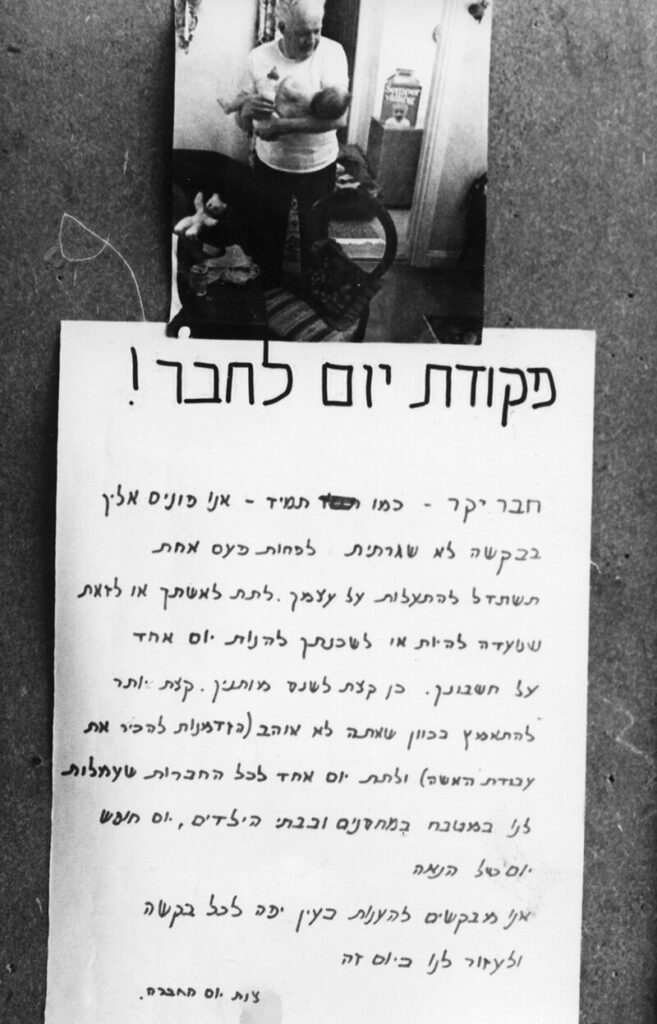 פקודת יום לחבר!
חבר יקר - כמו תמיד - אנו פונים אליך
בבקשה לא שגרתית לפחות פעם אחת
תשתדל להתעלות על עצמך. לתת לאשתך או לזאת
שנועדה להיות או לשכנתך להנות יום אחד
על חשבונך. כן קצת לשנס מותניך. קצת יותר
להתאמץ בכוון שאתה לא אוהב (הזדמנות להכיר את
עבודת האשה) ולתת יום אחד לכל החברות שעמלות
לנו במטבח במחסנים ובבתי הילדים, יום חופש
יום של הנאה
אנו מבקשים להענות בעין יפה לכל בקשה
ולעזור לנו ביום זה
צוות יום החברה.